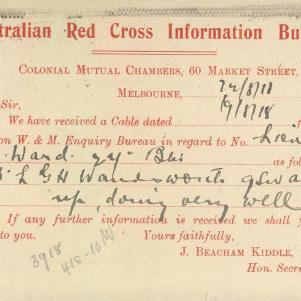 tralian Red Cross Information Bu
COLONIAL MUTUAL CHAMBERS, 60 MARKET STREET,
MELBOURNE, 22/8/18
Sir, 19/8/18
We have received a Cable dated
on W. & M. Enquiry Bureau in regard to No. Lieu
Ward. 24th Bn
as fol
L G H Wandsworth
doing very well
If any further information is received we shall y
to you. Yours faithfully,
3918 J. BEACHAM KIDDLE,
Hon. Secre